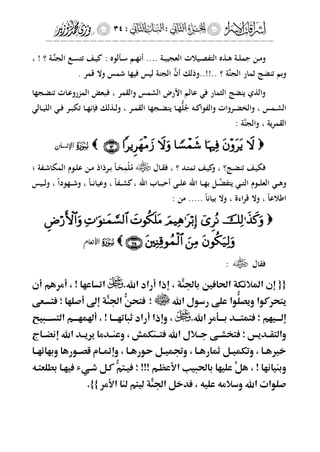 الجزء الثاني : الباب الثاني : ٣٤
ومن جملة هذه التفصيلات العجيبة .... أنهم سألوه : كيف تتسع الجنَّة ؟ ! ،
وبم تنضج ثمار الجنَّة ؟ ..!!..وذلك أنَّ الجنة ليس فيها شمس ولا قمر .
والذي ينضج الثمار في عالم الأرض الشمس والقمر ، فبعض المزروعات تنضجها
الشمس ، والخضروات والفواكه جُلُّها ينضجها القمر ، ولذلك فإنها تكبر في الليالي
القمرية ، والجنَّة :
﴿ لَا يَرَوْنَ فِيهَا شَمْسًا وَلَا زَمْهَرِيرًا ﴾ ١٣ الإنسان
فكيف تنضج؟ ، وكيف تمتد ؟ ، فقال ﷺ مُلَمِّحاً برذاذ من علوم المكاشفة ؛
وهي العلوم التي يتفضَّل بها الله على أحباب الله ، كشفاً ، وعياناً ، وشهوداً ، وليس
اطلاعاً ، ولا قراءة ، ولا بياناً ..... من :
﴿ وَكَذَٰلِكَ نُرِي إِبْرَاهِيمَ مَلَكُوتَ السَّمَاوَاتِ وَالْأَرْضِ
وَلِيَكُونَ مِنَ الْمُوقِنِينَ ﴾ ٧٥ الأنعام
فقال ﷺ :
{{ إن الملائكة الحافين بالجنَّة ، إذا أراد الله.. اتساعها ! ، أمرهم أن
يتحركوا ويصلُّوا على رسول الله ﷺ ؛ فتحنُّ الجنَّة إلى أصلها ؛ فتسعى
إليهم ؛ فتمتد بأمر الله.. ، وإذا أراد ثباتها ! ، ألهمهم التسبيح
والتقديس ؛ فتخشى جلال الله فتنكمش ، وعندما يريد الله إنضاج
خيرها ، وتكميل ثمارها ، وتجميل حورها ، وإتمام قصورها وبهائها
وبنيانها ! ، هلَّ عليها بالحبيب الأعظم !!! ؛ فيتمُّ كل شيء فيها بطلعته
صلوات الله وسلامه عليه ، فدخل الجنَّة ليتم لنا الأمر }}.